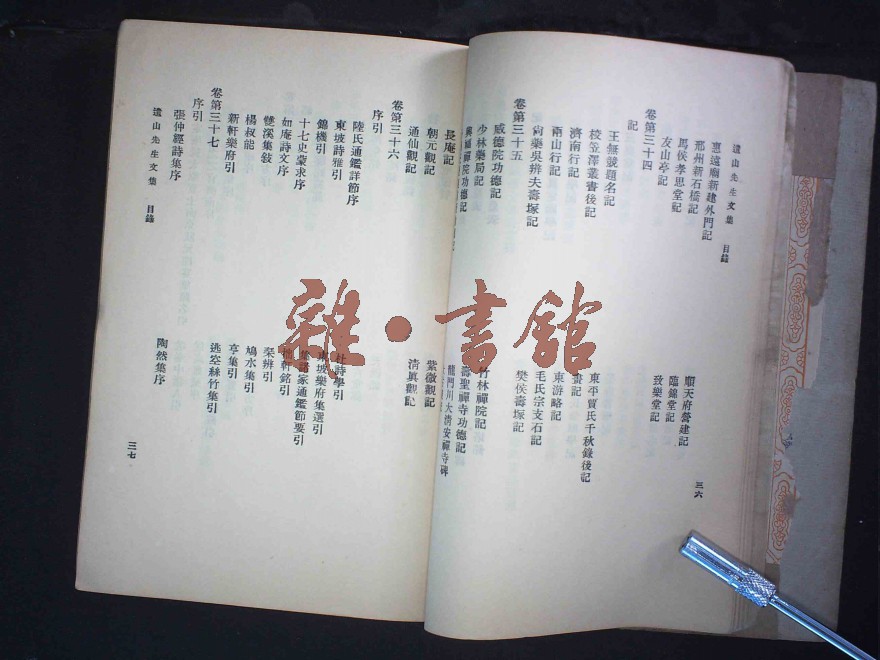 遺山先生文集 目錄
惠遠廟新建外門記
順天府營建記
邢州新石橋記
臨錦堂記
馬侯孝思堂記
致樂堂記
友山亭記
卷第三十四
記
東平賈氏千秋錄後記
王無競題名記
畫記
校笠澤叢書後記
東游略記
濟南行記
毛氏宗支石記
兩山行記
樊侯壽塚記
尚藥吳辨夫壽塚記
卷第三十五
威德院功德記
竹林禪院記
少林藥局記
壽聖禪寺功德記
興福禪院功德記
龍門川大清安禪寺碑
三六
長庵記
朝元觀記
紫微觀記
通仙觀記
清真觀記
卷第三十六
序引
陸氏通鑑詳節序
杜詩學引
東坡詩雅引
東坡樂府集選引
錦機引
集諸家通鑑節要引
十七史蒙求序
如庵詩文序
琴辨引
雙溪集敍
鳩水集引
楊叔能
亨集引
新軒樂府引
逃空絲竹集引
卷第三十七
序引
張仲經詩集序
陶然集序
遺山先生文集 目錄
三七
雜·書館